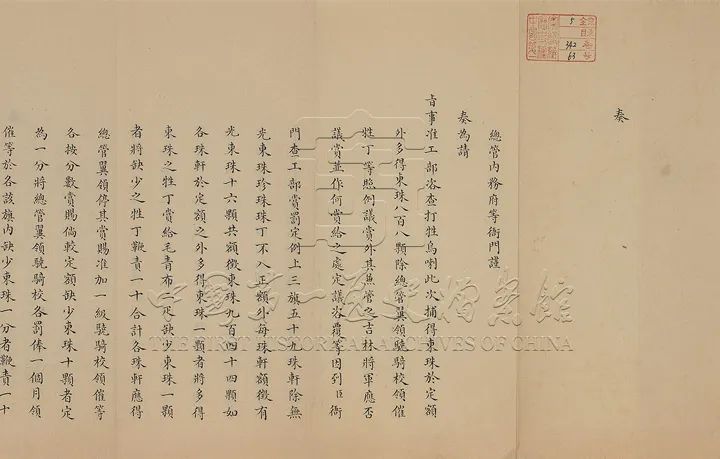 奏
總管內務府等衙門謹
奏為請
旨事准工部咨查打牲烏喇此次捕得東珠於定額
外多得東珠八百八顆除總管翼領驍騎校領催
牲丁等照例議賞外其無管之吉林將軍應否
議賞並作何賞給之處定議咨覆等因到臣衙
門查工部賞罰定例上三旗五十九珠軒除無
光東珠珍珠珠丁不入正額外每珠軒額徵有
光東珠十六顆共額徵東珠九百四十四顆如
各珠軒於定額之外多得東珠一顆者將多得
東珠之牲丁賞給毛青布二疋缺少東珠一顆
者將缺少之牲丁鞭責一十合計各珠軒應得
總管翼領停其賞賜准加一級驍騎校領催等
各按分數賞賜倘較定額缺少東珠十顆者定
為一分將總管翼領驍騎校各罰俸一個月領
催等於各該旗內缺少東珠一分者鞭責一十
中國第一歷史檔案館
THE FIRST HISTORICAL ARCHIVES OF CHINA
5
342
63